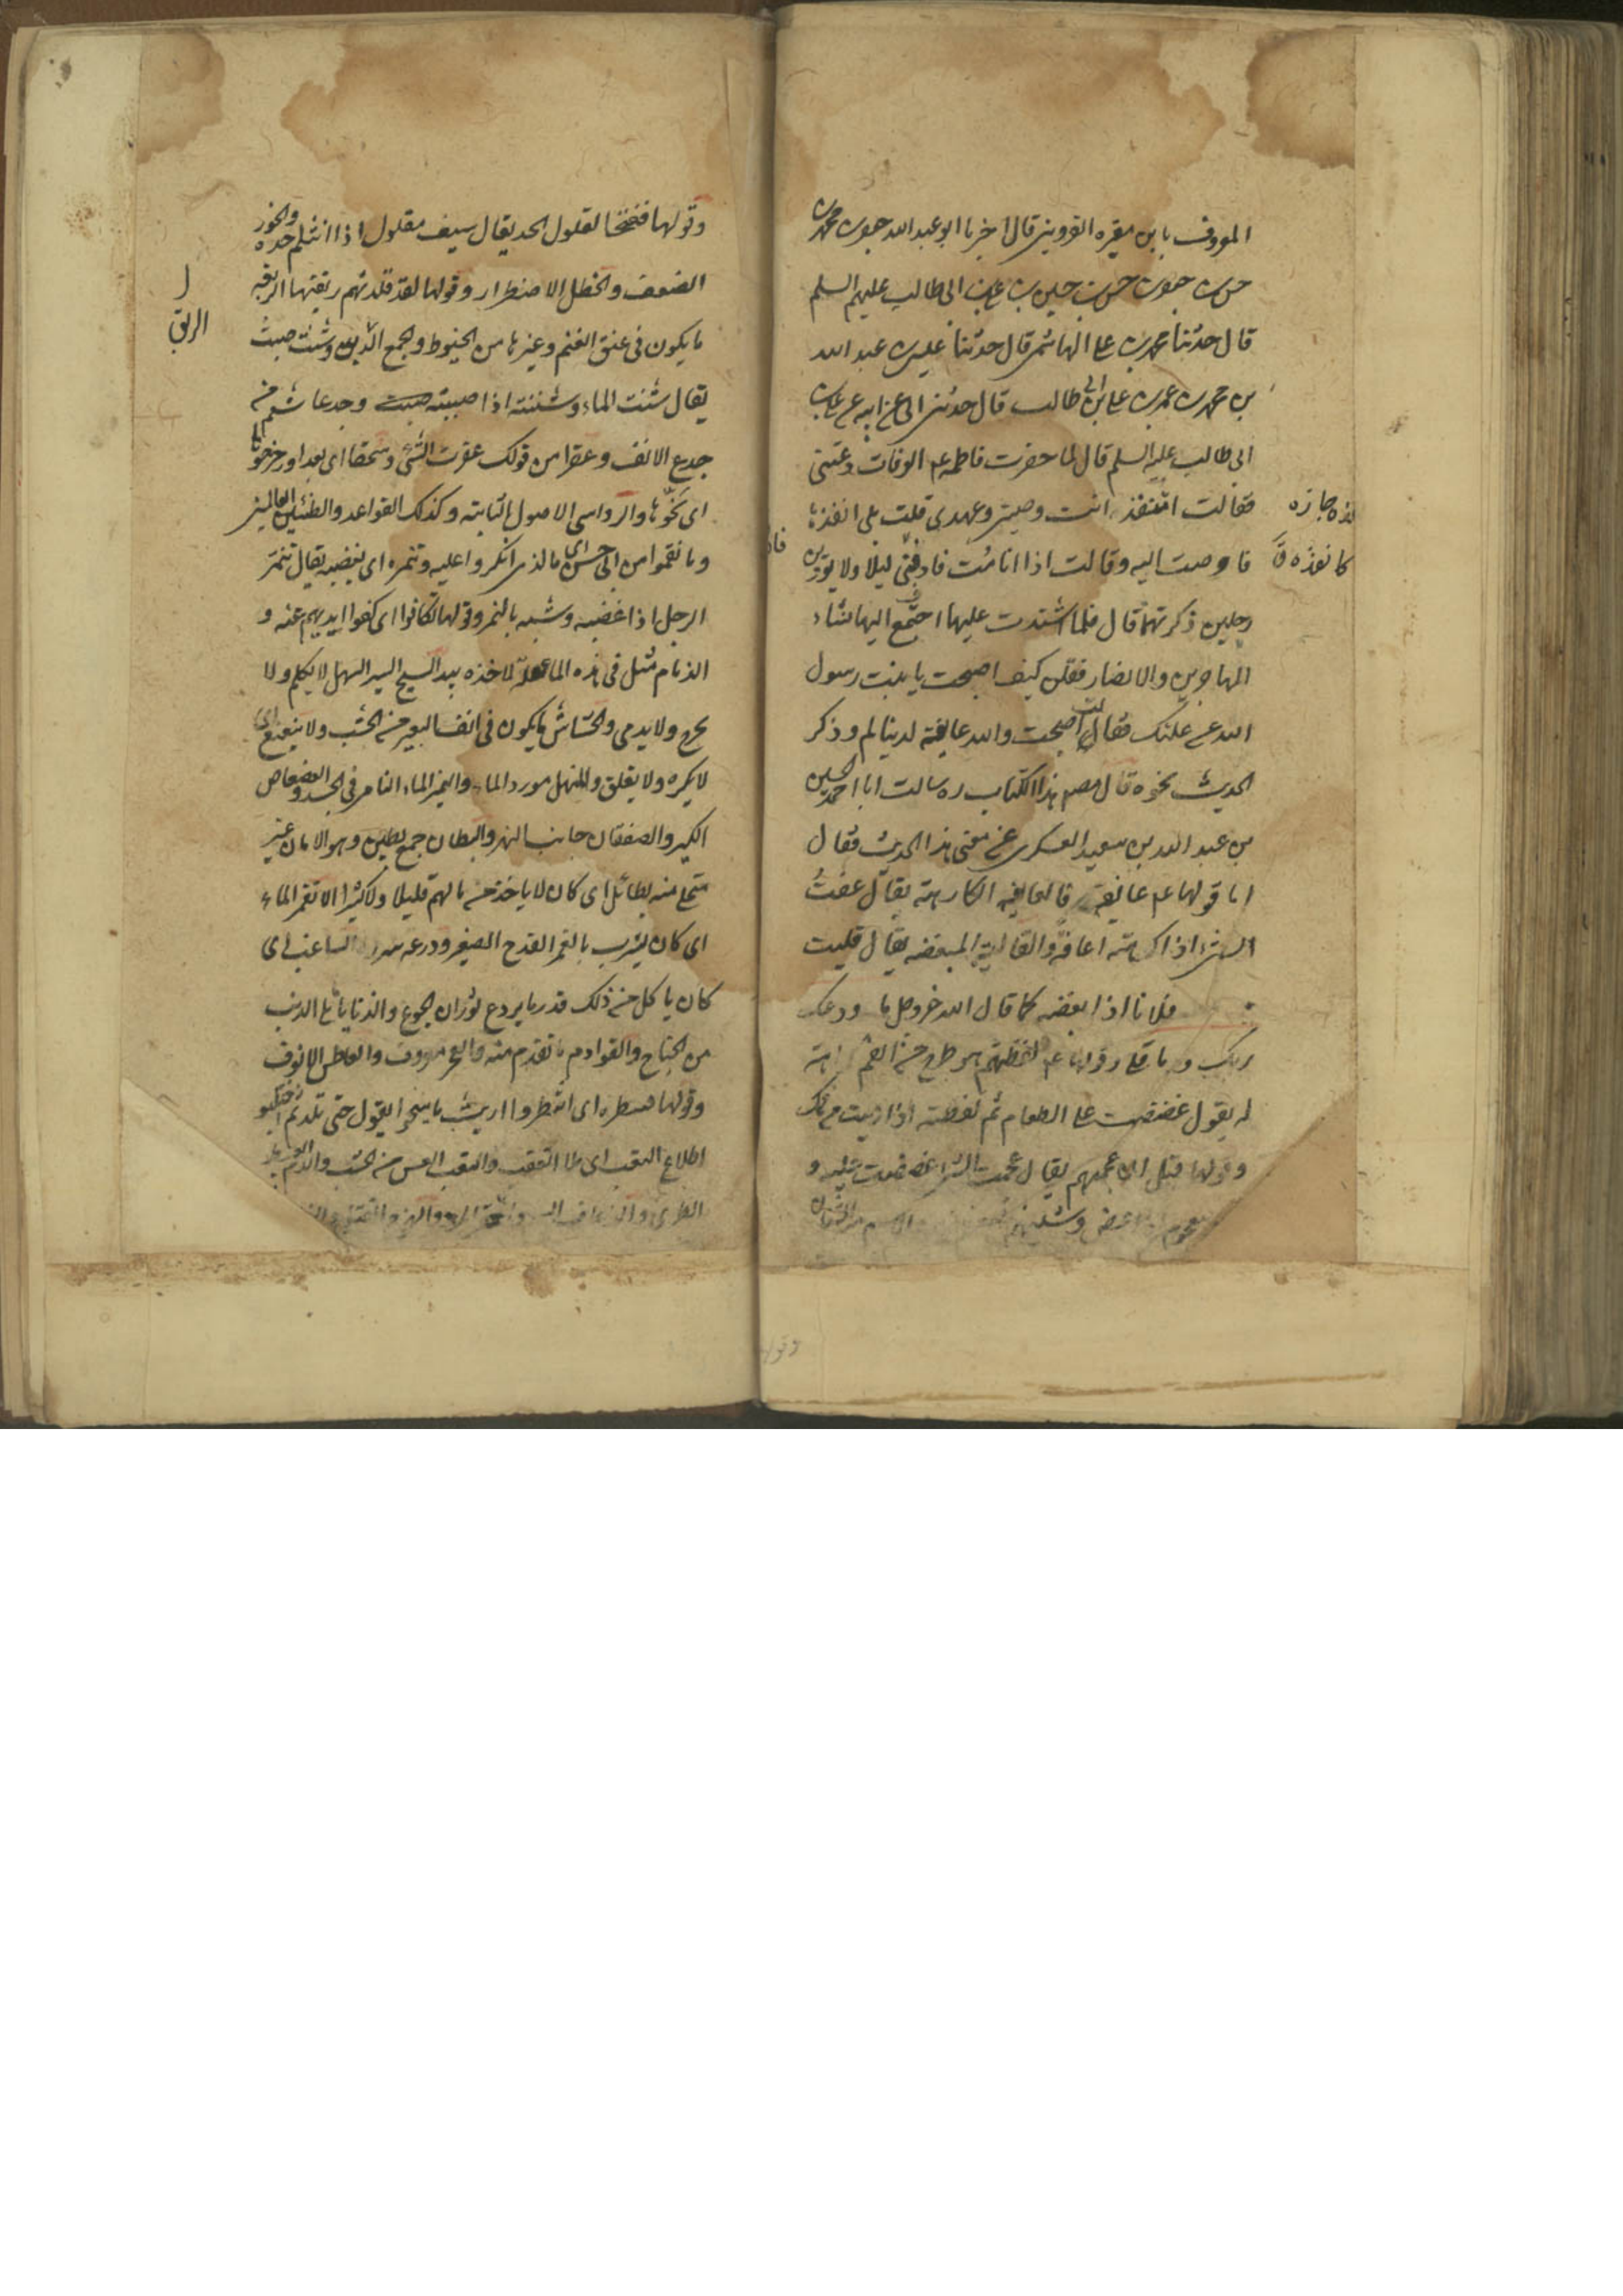 المعروف بابن مقبره القزوينى قال اخبرنا ابو عبد الله جعفر بن محمد بن
حسن بن جعفر بن حسن بن حسن بن على بن ابى طالب عليهم السلم
قال حدثنا محمد بن على الهاشمى قال حدثنا عيسى بن عبد الله
بن محمد بن عمر بن على بن ابى طالب قال حدثنى ابى عن ابيه عن على بن
ابى طالب عليه السلم قال لما حضرت فاطمه عم الوفات دعتنى
فقالت امنفذ انت وصيتى وعهدى قلت بلى انفذها
فاوصت اليه وقالت اذا انا مت فادفنى ليلا ولا يوذن
رجلين ذكرتهما قال فلما اشتدت عليها اجتمع اليها نساء
المهاجرين والانصار فقلن كيف اصبحت يا بنت رسول
الله عن علتك فقالت اصبحت والله عايفة لدنياكم وذكر
الحديث نحوه قال مصنف هذا الكتاب ره سالت ابا احمد الحسين
بن عبد الله بن سعيد العسكرى عن معنى هذا الحديث فقال
اما قولها عم عائفة فالعايفه الكارهة يقال عفت
الشى اذا كرهته اعافه والقالية المبغضه يقال قليت
فلانا اذا ابغضه كما قال الله عز وجل ما ودعك
ربك وما قلى وقولها عم لفظتهم هو طرح الشى من الفم
يقول عضضت على الطعام ثم لفظته اذا رميت من فمك
وقولها قبل ان عجمتهم يقال عجمت الشى اذا عضضت عليه و
وشنئتهم
كانفذه
وقولها فقبحا لفلول الحد يقال سيف مفلول اذا انثلم حده والخور
الضعف والخطل الاضطراب وقولها لقد قلدتهم ربقتها الربقه
ما يكون فى عنق الغنم وغيرها من الخيوط والجمع الربق وشنت صبت
يقال شنت الماء وشننته اذا صببته وجدعا شتم من
جدع الانف وعقرا من قولك عقرت الشى وسحقا اى بعدا وزحزحوها
اى نحوها والرواسى الاصول الثابته وكذلك القواعد والطبين العالمين
وما نقموا من ابى حسن اى ما الذى انكروا عليه وتنمره اى يغضبه يقال تنمر
الرجل اذا غضب وشبه بالنمر وقولها تكافوا اى كفوا ايديهم عنه و
الزمام مثل فى هذه لاخذه بيد السجح السير السهل لا يكلم ولا
يجرح ولا يدمى والخشاش ما يكون فى انف البعير من الخشب ولا يتعتع اى
لا يكره ولا يقلق والمنهل مورد الماء والنمير الماء النامى فى الجسد والفضفاض
الكثير والضفتان جانبا النهر والبطان جمع بطين وهو الريان غير
متحل منه بطائل اى كان لا ياخذ من مالهم قليلا ولا كثيرا الا تغمر الماء
اى كان يشرب بالغمر القدح الصغير وردعه سورة الساغب اى
كان ياكل من ذلك قدر ما يردع ثوران الجوع والذنابا ما يلى الذنب
من الجناح والقوادم ما تقدم منه والعجز معروف والمعاطس الانوف
وقولها فنظره اى انتظروا ريث ما ينتج يقول حتى تلد ثم احتلبو
اطلاع القعب اى ملا القعب والقعب العس من الخشب والدم العبيط
الطرى والذعاف السم
ل
الربق